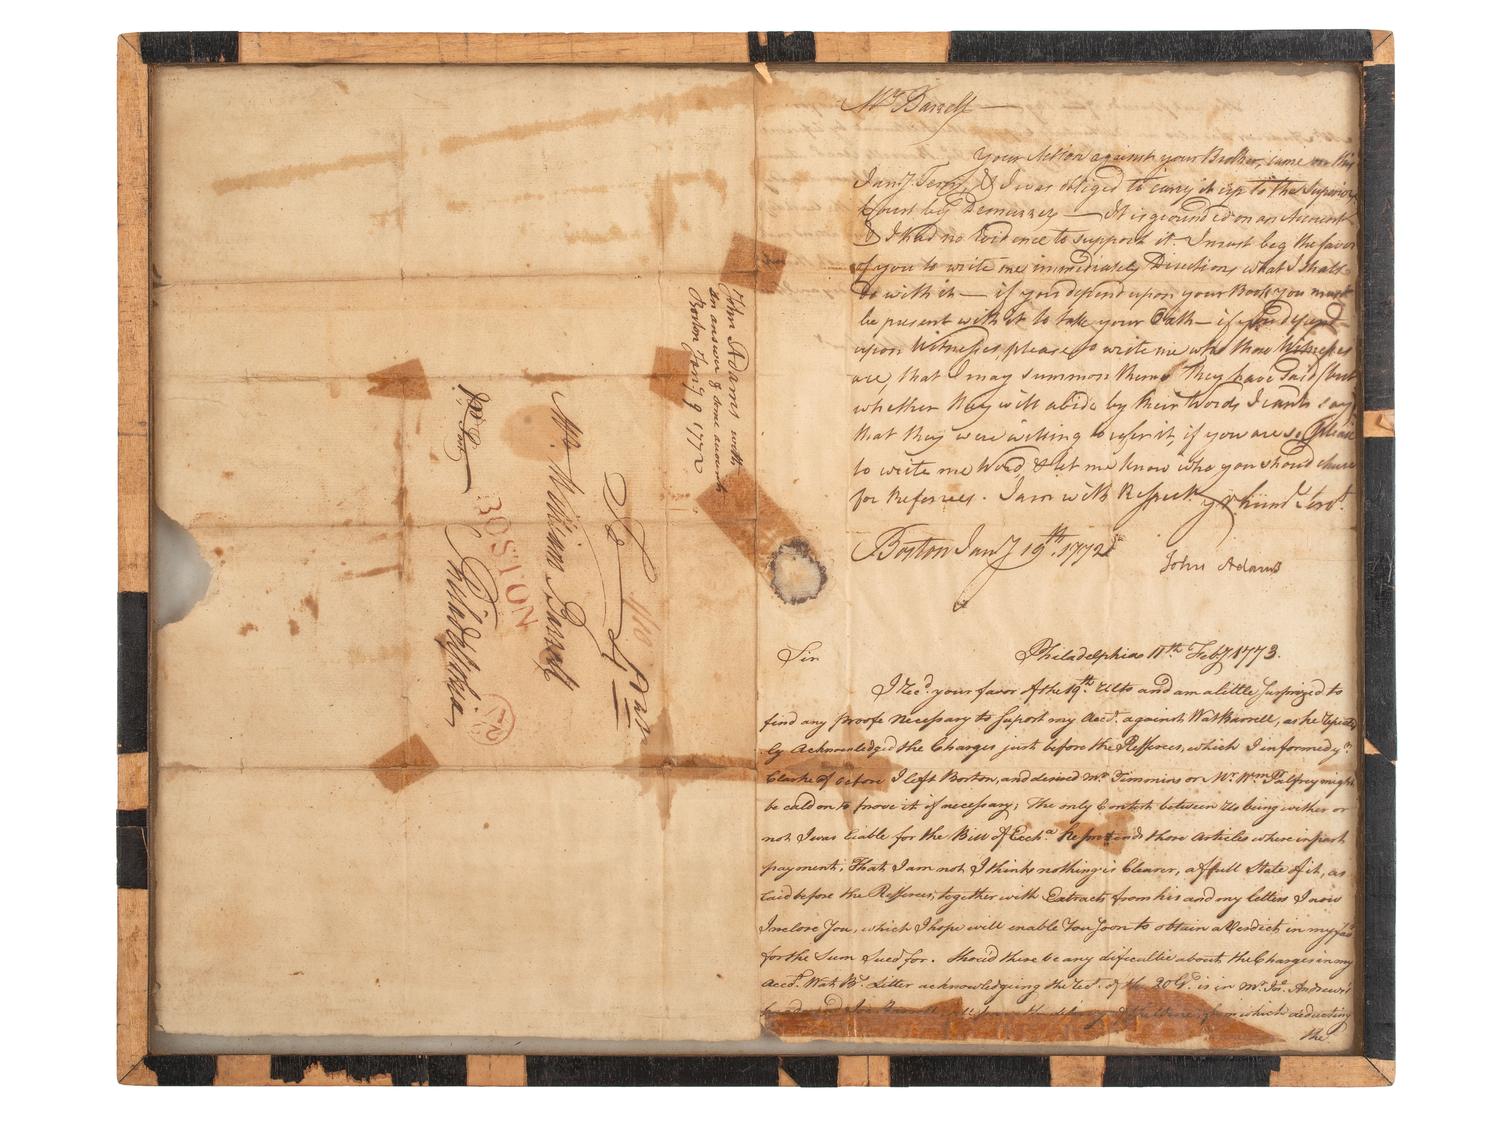 Mr. Barrell
Your Action against your Brother, came on this
Jany. Term, & I was obliged to carry it up to the Superior
Court by Demurrer — It is grounded on an Account
& I had no Evidence to support it. I must beg the favor
of you to write me immediately Directions what I shall
do with it — if you depend upon your Book you must
be present with it to take your Oath — if you depend
upon Witnesses please to write me who those Witnesses
are, that I may summon them. They have said (but
whether they will abide by their Words I cant say)
that they were willing to refer it, if you are so please
to write me Word, & let me know who you should chuse
for Referrees. I am with Respect yr. huml. Servt.
Boston Jany 19th. 1772
John Adams
Sir
Philadelphia 11th Feby. 1773.
I recd. your favor of the 19th. Ulto and am a little surprized to
find any proofe necessary to suport my Acct. against Wat Barrell, as he
ly Acknowledged the Charges just before the Refferees, which I informed yr.
Clarke of before I left Boston, and desired Mr. Timmins or Mr. Wm Palfrey might
be calld on to prove it if necessary; The only Contest between Us being wether or
not I was liable for the Bill of Excha. he pretends those Articles where in part
payment, That I am not I think nothing is Clearer, a full State of it, as
laid before the Refferees, together with Extracts from his and my letters I now
Inclose You, which I hope will enable You soon to obtain a Verdict in my
for the Sum Sued for. Should there be any dificultie about the Charges in my
Acct. Wat Bs. Letter acknowledging the of the is in Mr. Jos. Andrews's
hands and which deducting
the
John Adams with
an answer & some accounts
Boston Jany 9 1772
Mr. William Barrell
Philadelphia
BOSTON